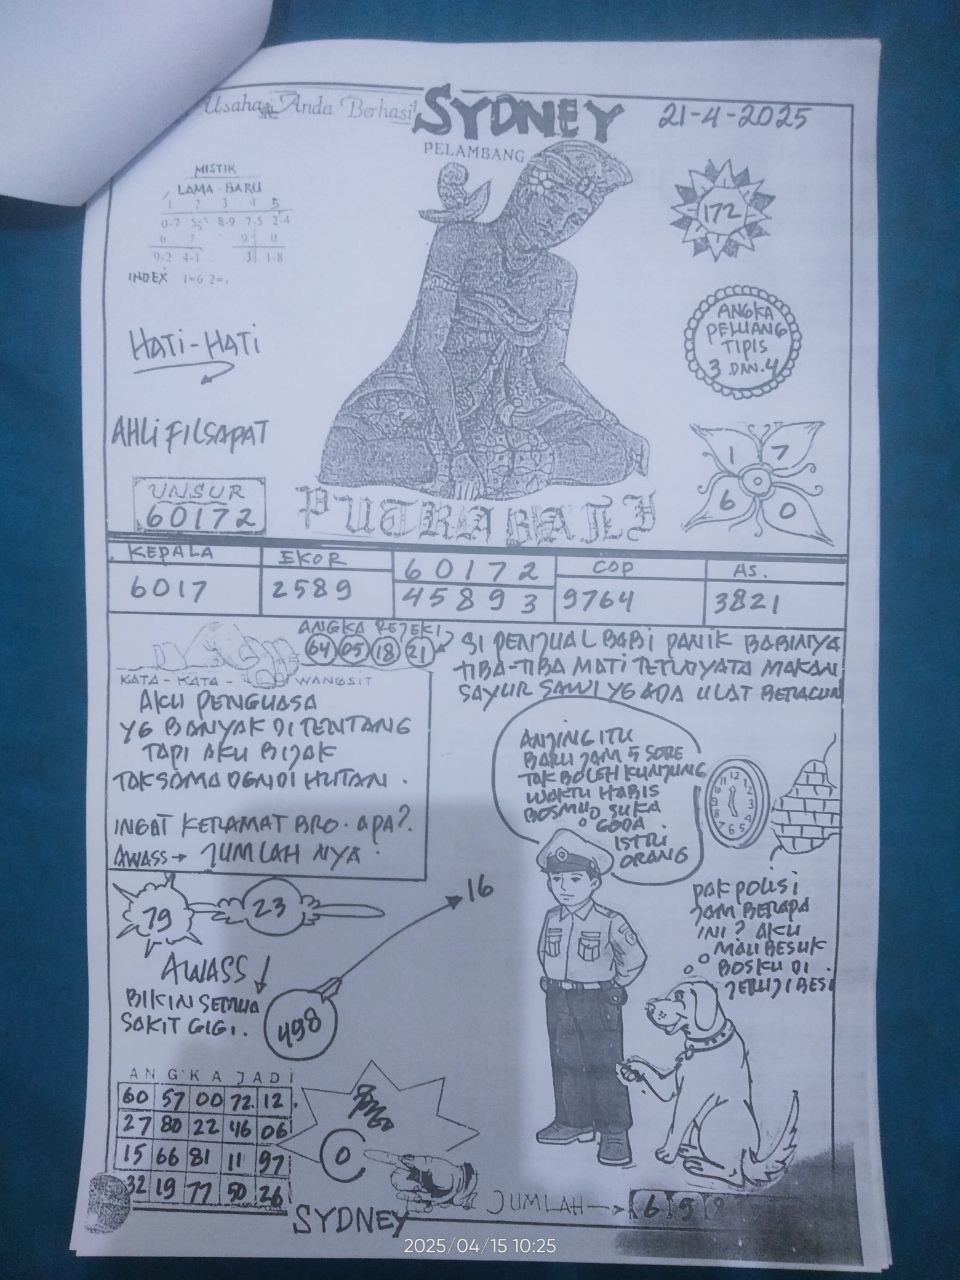 Usaha Anda Berhasil
SYDNEY
21-4-2025
PELAMBANG
MISTIK
LAMA - BARU
1 2 3 4 5
0-7 8-9 7-5 2-4
6 7 9 0
9-2 4-1 3 1-8
INDEX 1=6 2=
172
HATI-HATI
ANGKA
PELUANG
TIPIS
3 DAN 4
AHLI FILSAPAT
1 7
6 0
UNSUR
60172
PUTRA BALI
KEPALA EKOR 60172 COP AS.
6017 2589 45893 9764 3821
ANGKA REJEKI
64 05 18 21
SI PENJUAL BABI PANIK BABINYA
TIBA-TIBA MATI TERNYATA MAKAN
SAYUR SAWI YG ADA ULAT BERACUN
KATA - KATA - WANGSIT
AKU PENGUASA
YG BANYAK DI TENTANG
TAPI AKU BIJAK
TAK SAMA DENG DI HUTAN.
INGAT KERAMAT BRO. APA?.
AWASS → JUMLAH NYA.
ANJING ITU
BARU JAM 5 SORE
TAK BOLEH KUNJUNG
WAKTU HABIS
BOSMU SUKA
GODA
ISTRI
ORANG
PAK POLISI
JAM BERAPA
INI? AKU
MAU BESUK
BOSKU DI
JERUJI BESI
79 23
16
AWASS
BIKIN SEMUA
SAKIT GIGI.
498
ANGKA JADI
60 57 00 72 12
27 80 22 46 06
15 66 81 11 97
32 19 77 50 26
0
JUMLAH → 6 5 8
SYDNEY
2025/04/15 10:25